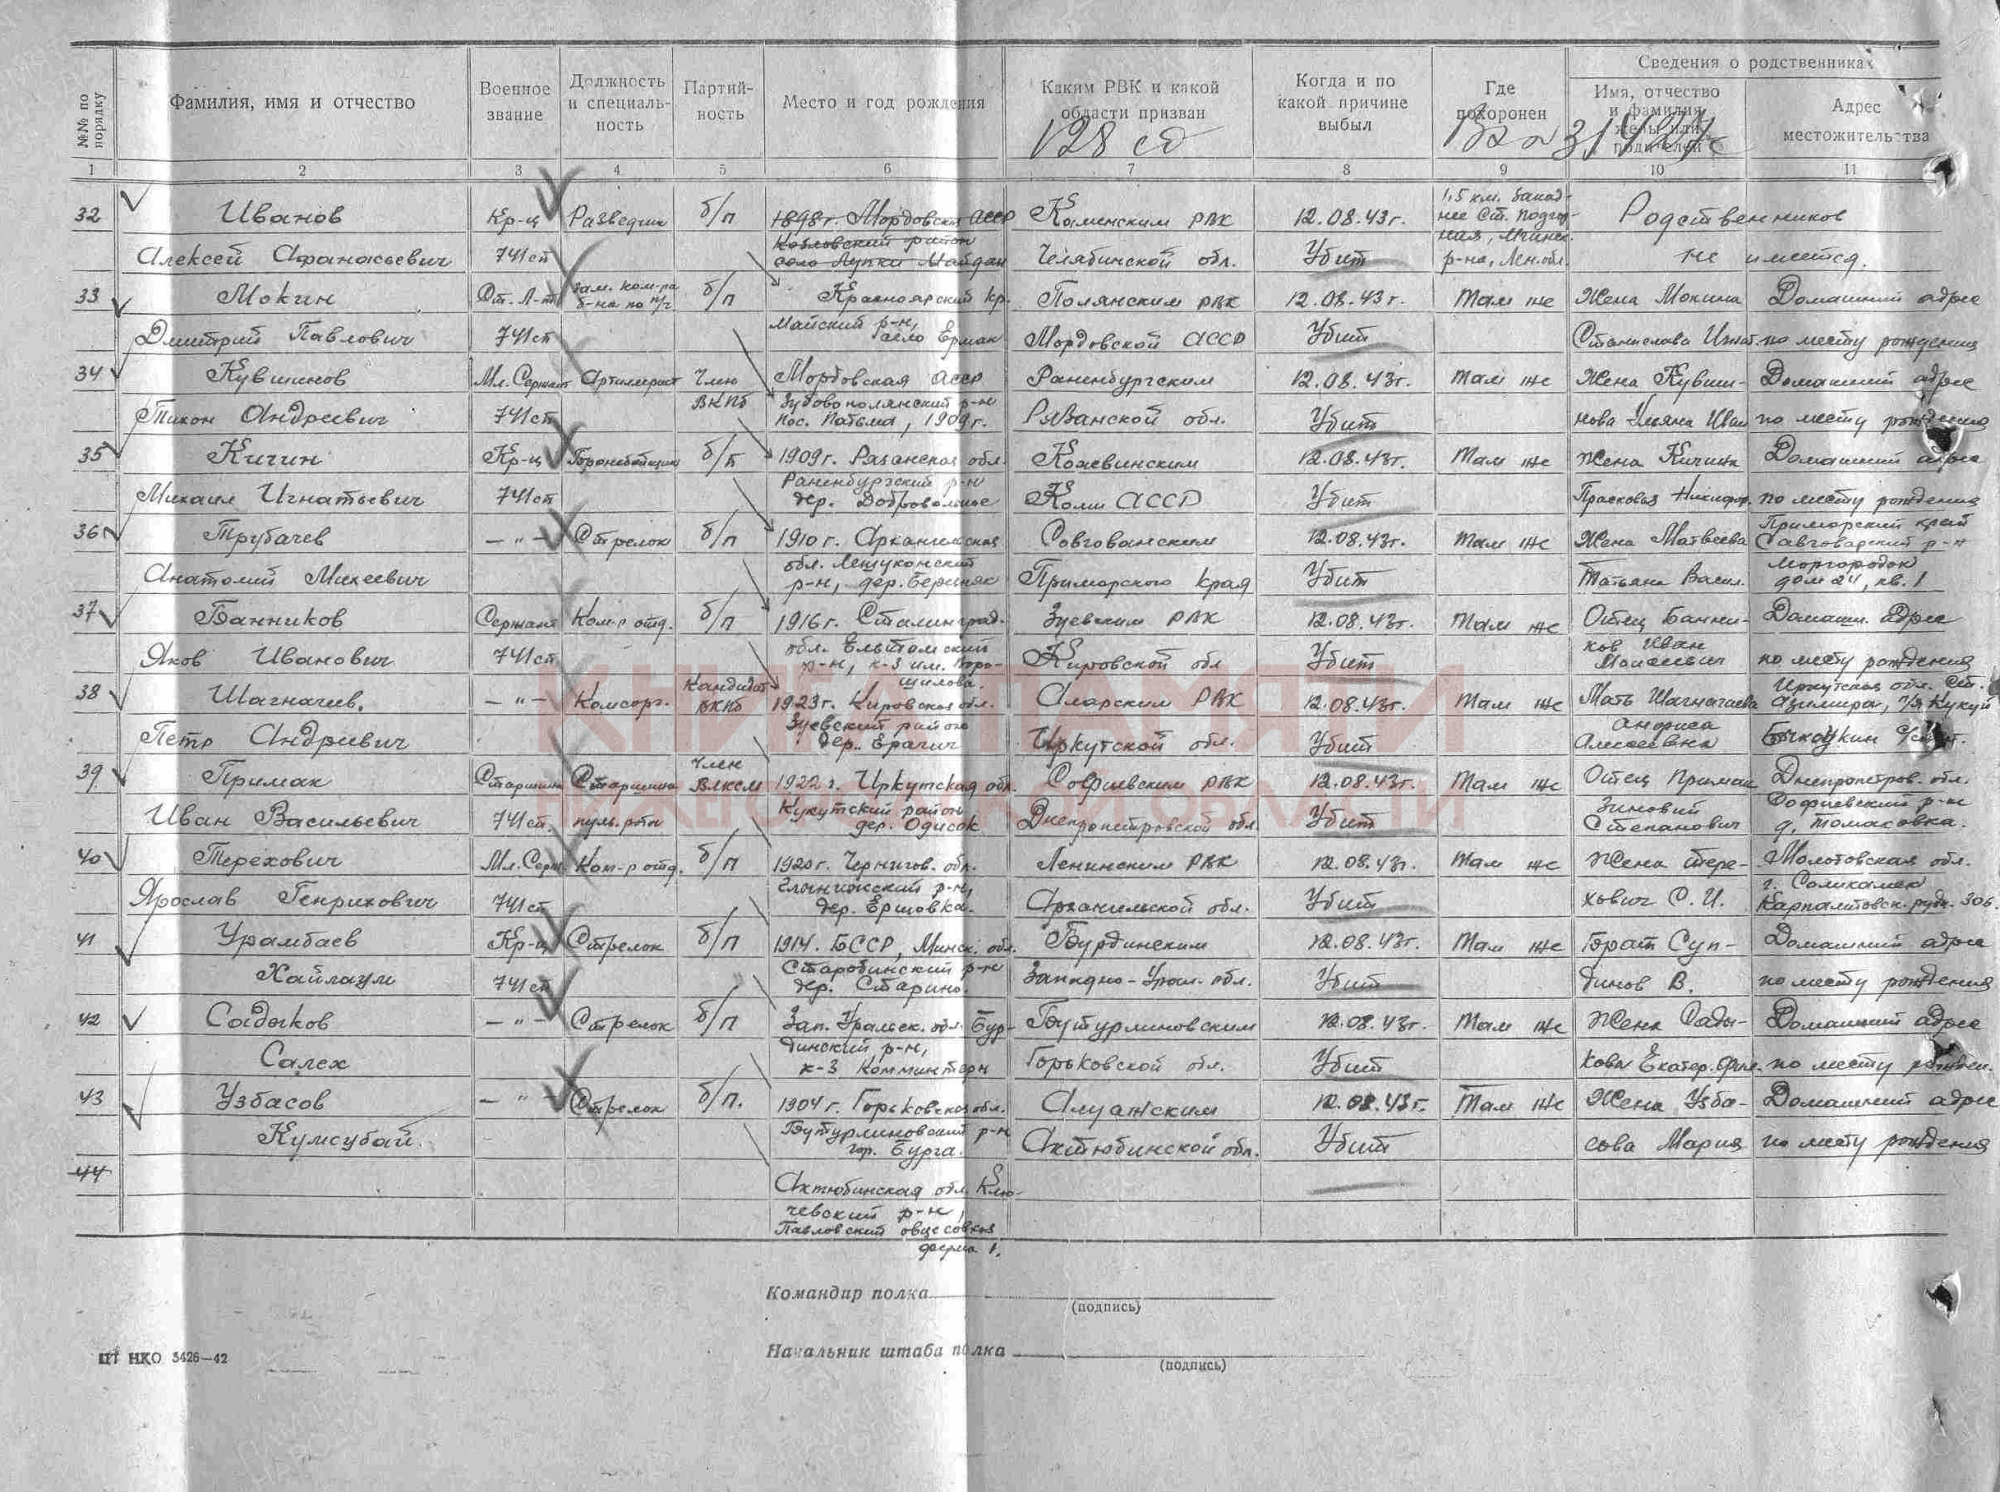 №№ по порядку
Фамилия, имя и отчество
Военное звание
Должность и специаль-ность
Партий-ность
Место и год рождения
Каким РВК и какой области призван
Когда и по какой причине выбыл
Где похоронен
Сведения о родственниках
Имя, отчество и фамилия жены или родителей
Адрес местожительства
128 сд
1 2 3 4 5 6 7 8 9 10 11
32 Иванов Кр-ц Разведчик б/п 1898 г. Мордовская АССР Каменским РВК 12.08.43г. 1,5 км. Запад- Родственников
нее ст. Подгор-
Козловский район
ная, Мгинск.
Алексей Афанасьевич 741 сп село Майдан Челябинской обл. Убит р-на, Лен. обл. не имеется.
33 Мокин Ст. Л-т Зам. ком-ра б-на по п/ч б/п Красноярский кр. Полянским РВК 12.08.43г. Там же Жена Мокина Домашний адрес
Дмитрий Павлович 741 сп Майский р-н, село Ермак Мордовской АССР Убит Станислава Игнат. по месту рождения
34 Кувшинов Мл. Сержант Артиллерист Член Мордовская АССР Раненбургским 12.08.43г. Там же Жена Кувши- Домашний адрес
ВКПб Зубовополянский р-н
Тихон Андреевич 741 сп пос. Потьма, 1909 г. Рязанской обл. Убит нова Ульяна Иван по месту рождения
35 Кичин Кр-ц Бронебойщик б/п 1909 г. Рязанская обл. Кожевинским 12.08.43г. Там же Жена Кичина Домашний адрес
Раненбургский р-н
Михаил Игнатьевич 741 сп дер. Добровольное Коми АССР Убит Прасковья Никифор. по месту рождения
36 Трубачев —"— Стрелок б/п 1910 г. Архангельская Совгованским 12.08.43г. Там же Жена Матвеева Приморский край Савгованский р-н
обл. Лешуконский
Анатолий Михеевич р-н, дер. Березняк Приморского края Убит Татьяна Васил. Моргородок дом 24, кв. 1
37 Банников Сержант Ком-р отд. б/п 1916 г. Сталинград. Зуевским РВК 12.08.43г. Там же Отец Банни- Домашн. адрес
обл. Эльтонский
Яков Иванович 741 сп р-н, к-з им. Воро- Кировской обл Убит ков Иван Моисеевич по месту рождения
шилова.
38 Шагначев. —"— Комсорг. Кандидат ВКПб 1923 г. Кировская обл. Аларским РВК 12.08.43г. Там же Мать Шагначева Иркутская обл. ст. Кукуй
Зуевский район
Петр Андреевич дер. Ерачич Иркутской обл. Убит Анфиса Алексеевна
39 Примак Старшина Старшина Член ВЛКСМ 1922 г. Иркутская обл. Софиевским РВК 12.08.43г. Там же Отец Примак Днепропетров. обл.
Кукутский район
Иван Васильевич 741 сп. пуль. роты дер. Одисок Днепропетровской обл Убит Зиновий Степанович Софиевский р-н д. Томаковка.
40 Терехович Мл. Серж. Ком-р отд. б/п 1920 г. Чернигов. обл. Ленинским РВК 12.08.43г. Там же Жена Тере- Молотовская обл.
Ярослав Генрихович 741 сп дер. Ершовка. Архангельской обл. Убит хович С. И. г. Соликамск рудн. 306.
41 Урамбаев Кр-ц Стрелок б/п 1914. БССР, Минск. обл. Бурдинским 12.08.43г. Там же Брат Суп- Домашний адрес
Старобинский р-н
Хайлаум 741 сп дер. Старино. Западно-Урал. обл. Убит динов В. по месту рождения
42 Садыков —"— Стрелок б/п Зап. Уральск. обл. Бур- Бутурлиновским 12.08.43г. Там же Жена Сады- Домашний адрес
динский р-н,
Салех к-з Коминтерн Горьковской обл. Убит кова Екатер. по месту рожден.
43 Узбасов —"— Стрелок б/п. 1904 г. Горьковская обл. Алуажским 12.08.43г. Там же Жена Узба- Домашний адрес
Бутурлиновский р-н
Кумсубай. гор. Бурга. Актюбинской обл. Убит сова Мария по месту рождения
44
Актюбинская обл. Клю-
чевский р-н,
Павловский овцесовхоз
ферма 1.
КНИГА ПАМЯТИ
НИЖЕГОРОДСКОЙ ОБЛАСТИ
Командир полка
(подпись)
Начальник штаба полка
(подпись)
ЦТ НКО 5426—42